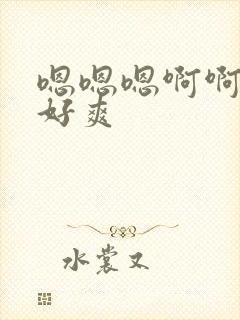 嗯嗯嗯啊啊
好爽
水裳又